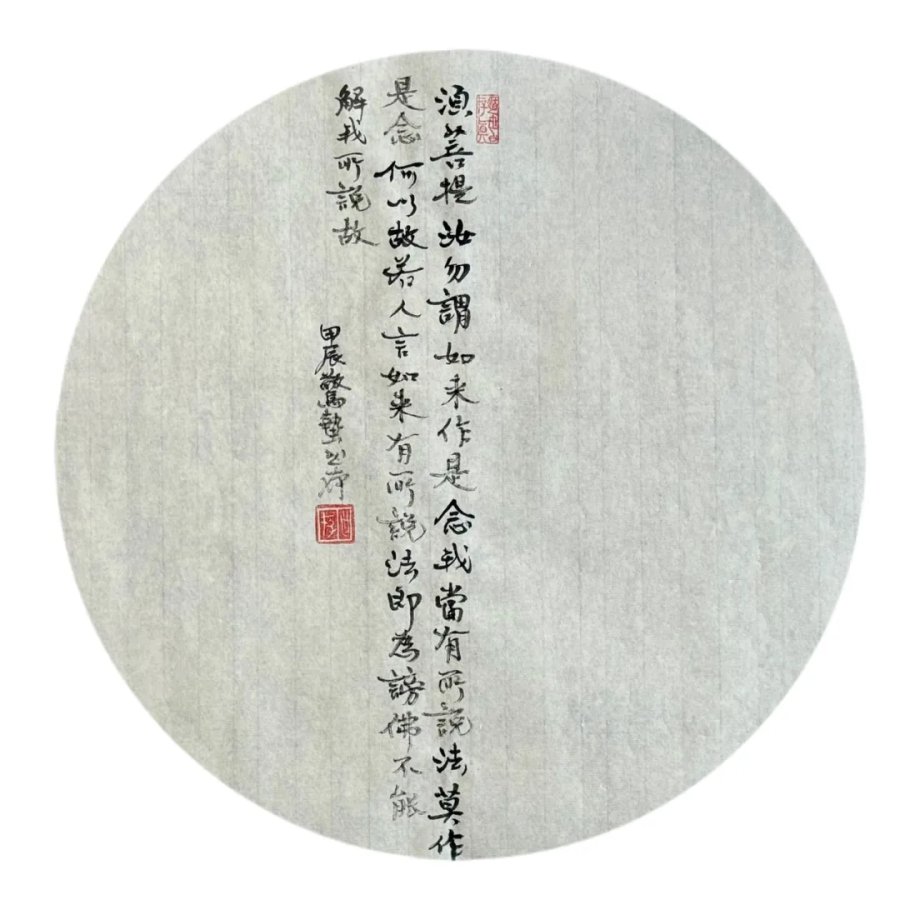 須菩提汝勿謂如来作是念我當有所說法莫作
是念何以故若人言如来有所說法即為謗佛不能
解我所說故
甲辰驚蟄